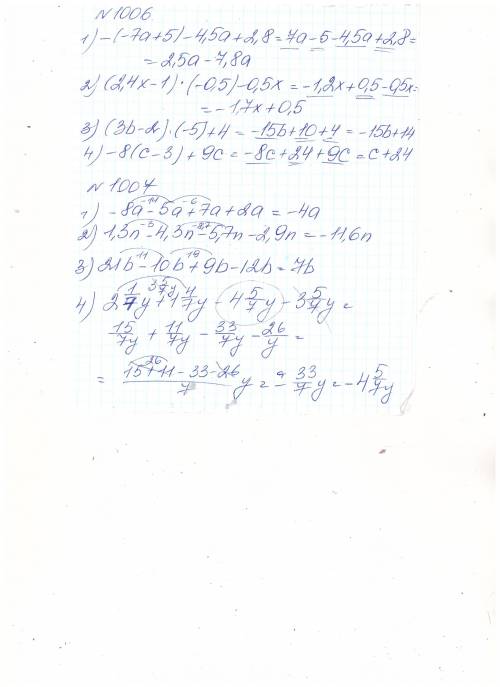 №1006
1) -(-7a+5)-4,5a+2,8=7a-5-4,5a+2,8=
=2,5a-7,8a
2) (2,4x-1)·(-0,5)-0,5x=-1,2x+0,5-0,5x=
=-1,7x+0,5
3) (3b-2)·(-5)+4=-15b+10+4=-15b+14
4) -8(c-3)+9c=-8c+24+9c=c+24
№1007
-11 -6
1) -8a-5a+7a+2a=-4a
-3 -27
2) 1,3n-4,3n-5,7n-2,9n=-11,6n
11 19
3) 21b-10b+9b-12b=7b
4) 2 1/7 y+1 4/7 y-4 5/7 y-3 5/7 y=
15/7 y + 11/7 y - 33/7 y - 26/y =
26
= (15+11-33-26)/7 y = -33/7 y = -4 5/7 y